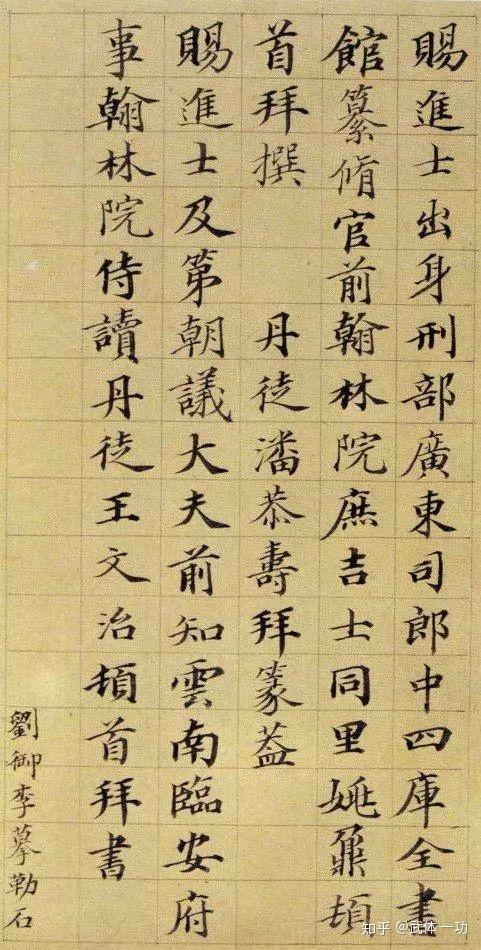 賜進士出身刑部廣東司郎中四庫全書
館纂脩官前翰林院庶吉士同里姚鼐頓
首拜撰 丹徒潘恭壽拜篆葢
賜進士及第朝議大夫前知雲南臨安府
事翰林院侍讀丹徒王文治頓首拜書
劉御李摹勒石
知乎 @武体一功